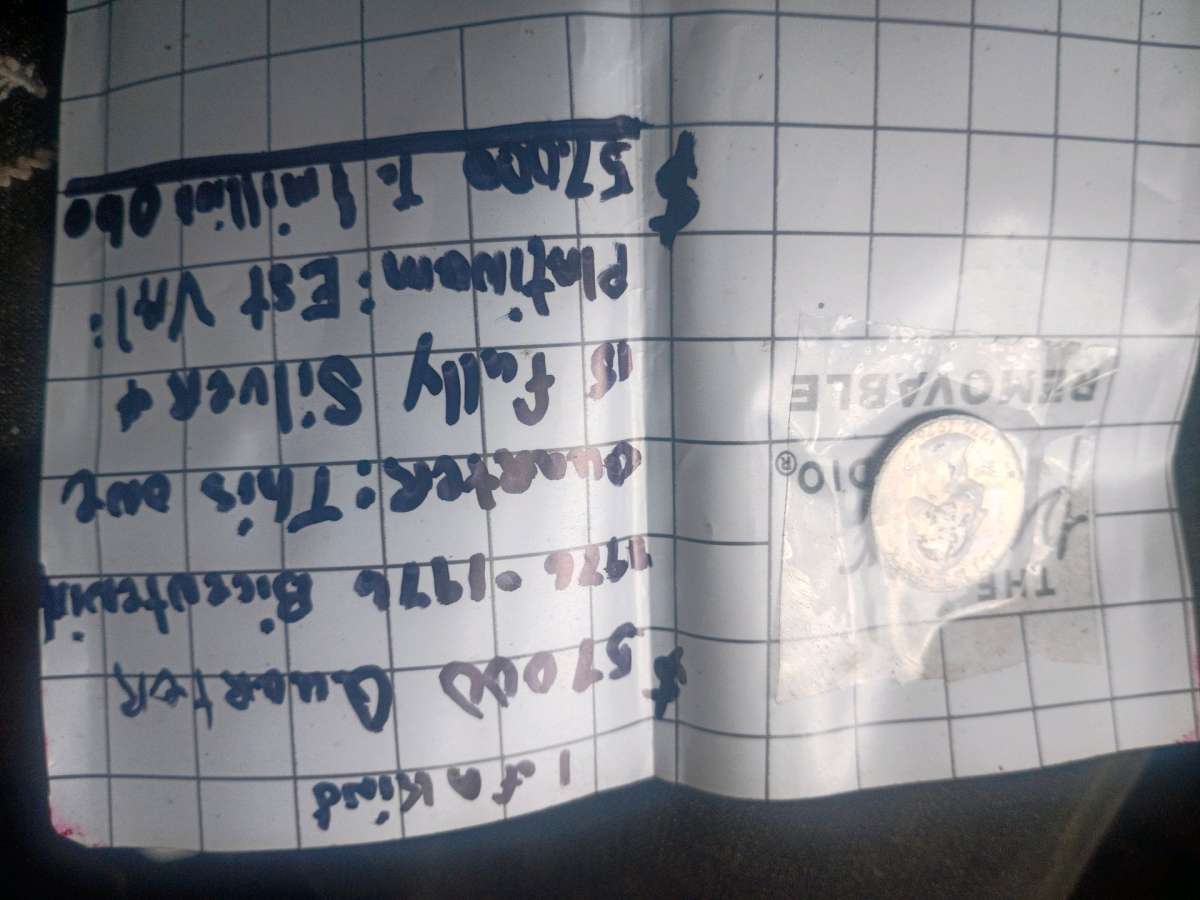 1 of A Kind
$57000 Quarter
1776-1976
Quarter: This one
is fully Silver +
Platinum: Est Val:
$57,000 To 1 million Obo
THE
DIO®
REMOVABLE